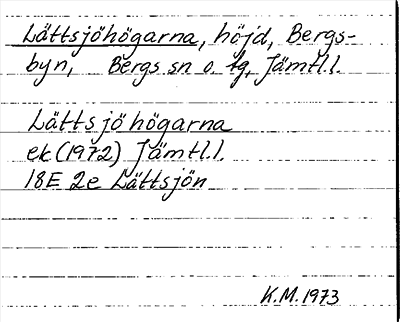 Lättsjöhögarna, höjd, Bergs-
byn, Bergs sn o. tg, Jämtl.l.
Lättsjöhögarna
ek (1972) Jämtl.l.
18E 2e Lättsjön
K.M. 1973